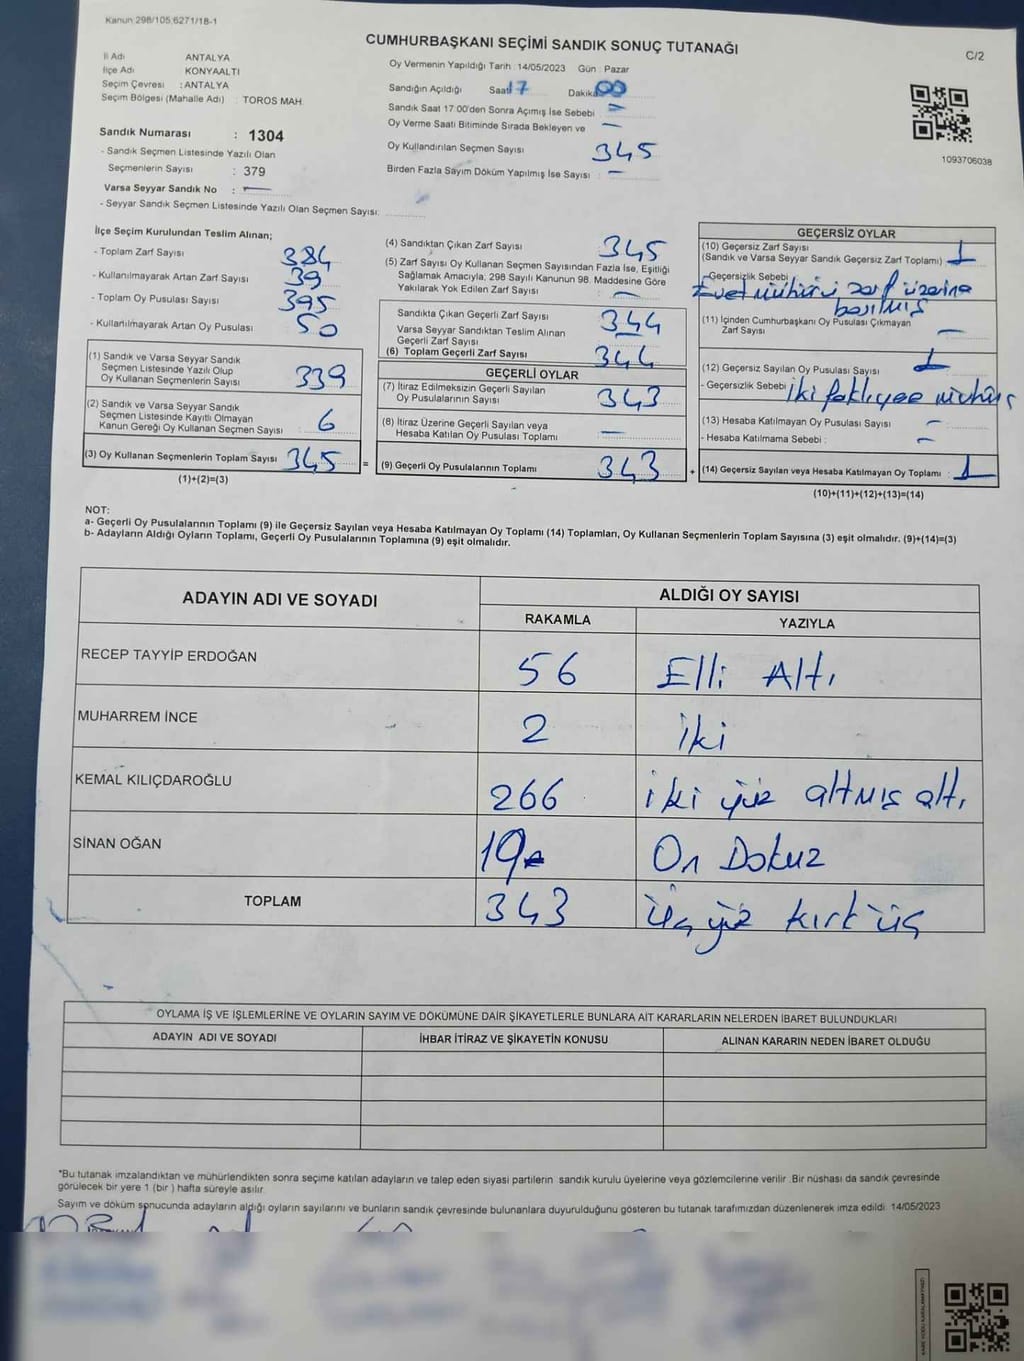 Kanun 298/105,6271/18-1
CUMHURBAŞKANI SEÇİMİ SANDIK SONUÇ TUTANAĞI
C/2
İl Adı ANTALYA
İlçe Adı KONYAALTI
Seçim Çevresi : ANTALYA
Seçim Bölgesi (Mahalle Adı) : TOROS MAH.
Sandık Numarası : 1304
- Sandık Seçmen Listesinde Yazılı Olan
Seçmenlerin Sayısı : 379
Varsa Seyyar Sandık No : —
- Seyyar Sandık Seçmen Listesinde Yazılı Olan Seçmen Sayısı:
Oy Vermenin Yapıldığı Tarih : 14/05/2023 Gün : Pazar
Sandığın Açıldığı Saat 17 Dakika 00
Sandık Saat 17:00'den Sonra Açımış İse Sebebi : —
Oy Verme Saati Bitiminde Sırada Bekleyen ve —
Oy Kullandırılan Seçmen Sayısı 345
Birden Fazla Sayım Döküm Yapılmış İse Sayısı : —
1093706038
İlçe Seçim Kurulundan Teslim Alınan;
- Toplam Zarf Sayısı 384
- Kullanılmayarak Artan Zarf Sayısı : 39
- Toplam Oy Pusulası Sayısı : 395
- Kullanılmayarak Artan Oy Pusulası : 50
(1) Sandık ve Varsa Seyyar Sandık
Seçmen Listesinde Yazılı Olup
Oy Kullanan Seçmenlerin Sayısı : 339
(2) Sandık ve Varsa Seyyar Sandık
Seçmen Listesinde Kayıtlı Olmayan
Kanun Gereği Oy Kullanan Seçmen Sayısı : 6
(3) Oy Kullanan Seçmenlerin Toplam Sayısı : 345
(1)+(2)=(3)
=
(4) Sandıktan Çıkan Zarf Sayısı 345
(5) Zarf Sayısı Oy Kullanan Seçmen Sayısından Fazla İse, Eşitliği
Sağlamak Amacıyla, 298 Sayılı Kanunun 98. Maddesine Göre
Yakılarak Yok Edilen Zarf Sayısı : —
Sandıkta Çıkan Geçerli Zarf Sayısı : 344
Varsa Seyyar Sandıktan Teslim Alınan
Geçerli Zarf Sayısı : —
(6) Toplam Geçerli Zarf Sayısı : 344
GEÇERLİ OYLAR
(7) İtiraz Edilmeksizin Geçerli Sayılan
Oy Pusulalarının Sayısı : 343
(8) İtiraz Üzerine Geçerli Sayılan veya
Hesaba Katılan Oy Pusulası Toplamı : —
(9) Geçerli Oy Pusulalarının Toplamı 343
+
GEÇERSİZ OYLAR
(10) Geçersiz Zarf Sayısı
(Sandık ve Varsa Seyyar Sandık Geçersiz Zarf Toplamı) : 1
-Geçersizlik Sebebi :
Evet mührü zarf üzerine
basılmış
(11) İçinden Cumhurbaşkanı Oy Pusulası Çıkmayan
Zarf Sayısı : —
(12) Geçersiz Sayılan Oy Pusulası Sayısı : 1
- Geçersizlik Sebebi : İki farklı yere mühür
(13) Hesaba Katılmayan Oy Pusulası Sayısı : —
- Hesaba Katılmama Sebebi : —
(14) Geçersiz Sayılan veya Hesaba Katılmayan Oy Toplamı : 1
(10)+(11)+(12)+(13)=(14)
NOT:
a- Geçerli Oy Pusulalarının Toplamı (9) ile Geçersiz Sayılan veya Hesaba Katılmayan Oy Toplamı (14) Toplamları, Oy Kullanan Seçmenlerin Toplam Sayısına (3) eşit olmalıdır. (9)+(14)=(3)
b- Adayların Aldığı Oyların Toplamı, Geçerli Oy Pusulalarının Toplamına (9) eşit olmalıdır.
ADAYIN ADI VE SOYADI ALDIĞI OY SAYISI
RAKAMLA YAZIYLA
RECEP TAYYİP ERDOĞAN 56 Elli Altı
MUHARREM İNCE 2 İki
KEMAL KILIÇDAROĞLU 266 iki yüz altmış altı
SİNAN OĞAN 19 On Dokuz
TOPLAM 343 Üç yüz kırk üç
OYLAMA İŞ VE İŞLEMLERİNE VE OYLARIN SAYIM VE DÖKÜMÜNE DAİR ŞİKAYETLERLE BUNLARA AİT KARARLARIN NELERDEN İBARET BULUNDUKLARI
ADAYIN ADI VE SOYADI İHBAR İTİRAZ VE ŞİKAYETİN KONUSU ALINAN KARARIN NEDEN İBARET OLDUĞU
*Bu tutanak imzalandıktan ve mühürlendikten sonra seçime katılan adayların ve talep eden siyasi partilerin sandık kurulu üyelerine veya gözlemcilerine verilir. Bir nüshası da sandık çevresinde
görülecek bir yere 1 (bir ) hafta süreyle asılır.
Sayım ve döküm sonucunda adayların aldığı oyların sayılarını ve bunların sandık çevresinde bulunanlara duyurulduğunu gösteren bu tutanak tarafımızdan düzenlenerek imza edildi. 14/05/2023